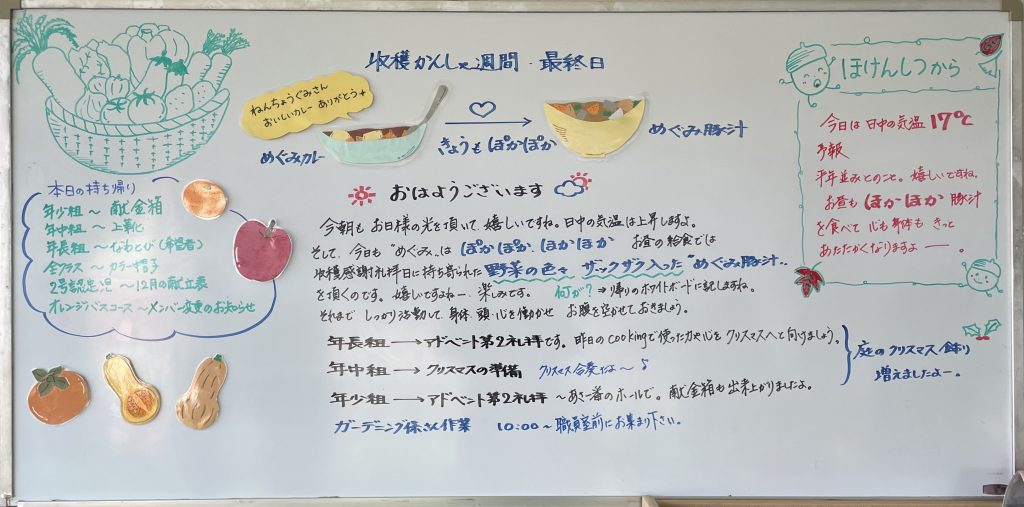 収穫かんしゃ週間・最終日
ねんちょうぐみさん
おいしいカレー ありがとう
めぐみカレー
きょうも ぽかぽか
めぐみ豚汁
ほけんしつから
今日は 日中の気温 17℃
予報
平年並みとのこと。嬉しいですね。
お昼も ほかほか 豚汁
を食べて 心も身体も きっと
あたたかくなりますよー。
本日の持ち帰り
年少組 〜 献金箱
年中組 〜 上靴
年長組 〜 なわとび(希望者)
全クラス 〜 カラー帽子
2号認定児 〜 12月の献立表
オレンジバスコース 〜 メンバー変更のお知らせ
おはようございます
今朝も お日様の光を頂いて、嬉しいですね。日中の気温は上昇しますよ。
そして、今日も "めぐみ"は ぽかぽか、ほかほか お昼の給食では
収穫感謝礼拝日に持ち寄られた 野菜の色々 ザックザク入った "めぐみ豚汁"
を頂くのです。嬉しいですよねー、楽しみです。 何が? ⇒ 帰りのホワイトボードに記しますね。
それまで しっかり活動して、身体・頭・心を働かせ お腹を空かせておきましょう。
年長組 → アドベント第2礼拝です。昨日のcookingで使った力や心を クリスマスへと向けましょう。
年中組 → クリスマスの準備 クリスマス会奏だよ〜♪
年少組 → アドベント第2礼拝 〜 あさ一番のホールで。献金箱も出来上がりましたよ。
庭のクリスマス飾り
増えましたよー。
ガーデニング係さん作業 10:00〜 職員室前にお集まり下さい。